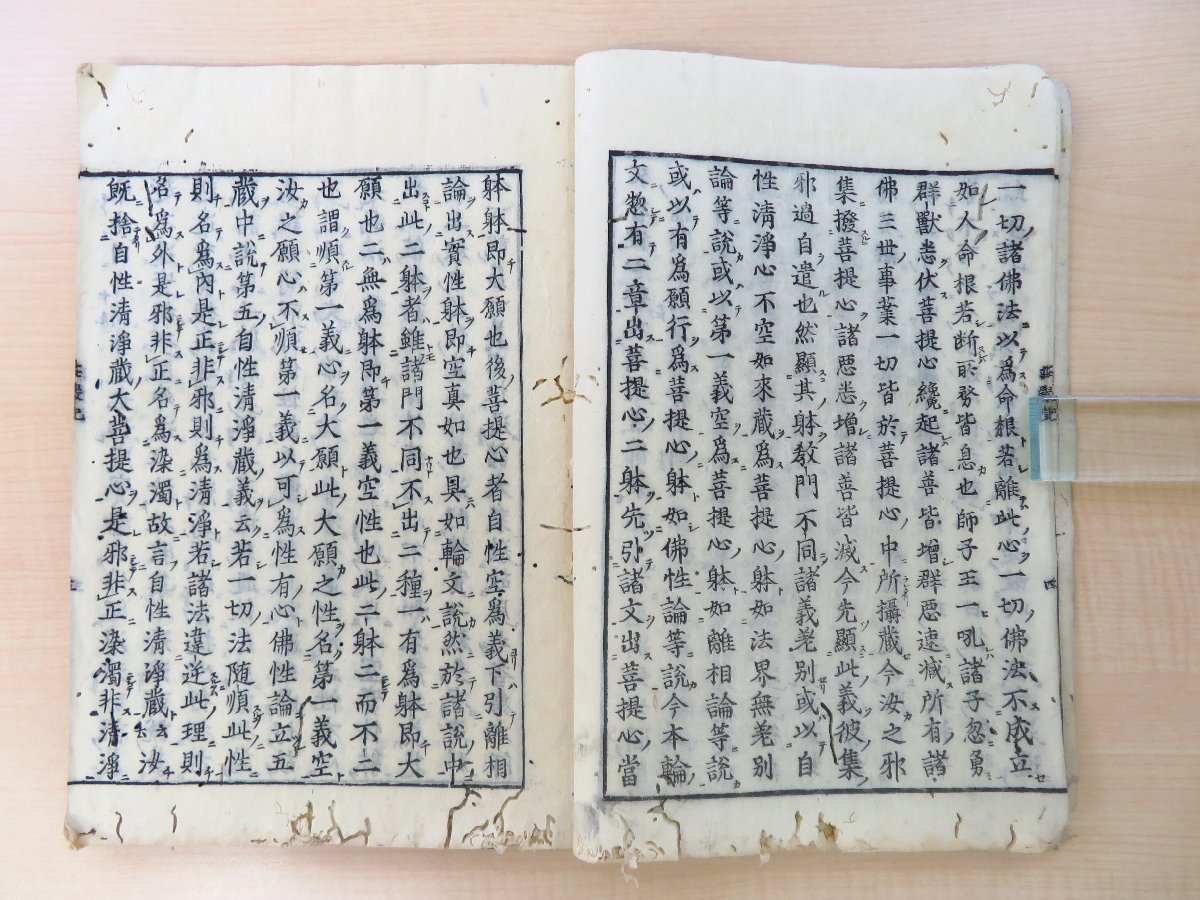 一切諸佛法以爲命根若離此心一切佛法不成立
如人命根若断眾務皆息也師子王一吼諸子忽勇
群獸悉伏菩提心纔起諸善皆增群惡速滅所有諸
佛三世事業一切皆於菩提心中所攝藏今汝之邪
集撥菩提心諸惡悉增諸善皆滅今先顯此義彼集
邪過自遣也然顯其躰教門不同諸義差別或以自
性清淨心不空如來藏爲菩提心躰如法界無差別
論等說或以第一義空爲菩提心躰如離相論等說
或以有爲願行爲菩提心躰如佛性論等說今本輪
文惣有二章出菩提心二躰先引諸文出菩提心當
躰躰即大願也後菩提心者自性空爲義下引離相
論出實性躰即空真如也具如輪文說然於諸說中
出此二躰者雖諸門不同不出二種一有爲躰即大
願也二無爲躰即第一義空性也此二躰二而不二
也謂順第一義心名大願此大願之性名第一義空
汝之願心不順第一義以可爲性有心佛性論立五
藏中說第五自性清淨藏義云若一切法随順此性
則名爲內是正非邪則爲清淨若諸法違逆此理則
名爲外是邪非正名爲染濁故言自性清淨藏云汝
既捨自性清淨藏大菩提心是邪非正染濁非清淨